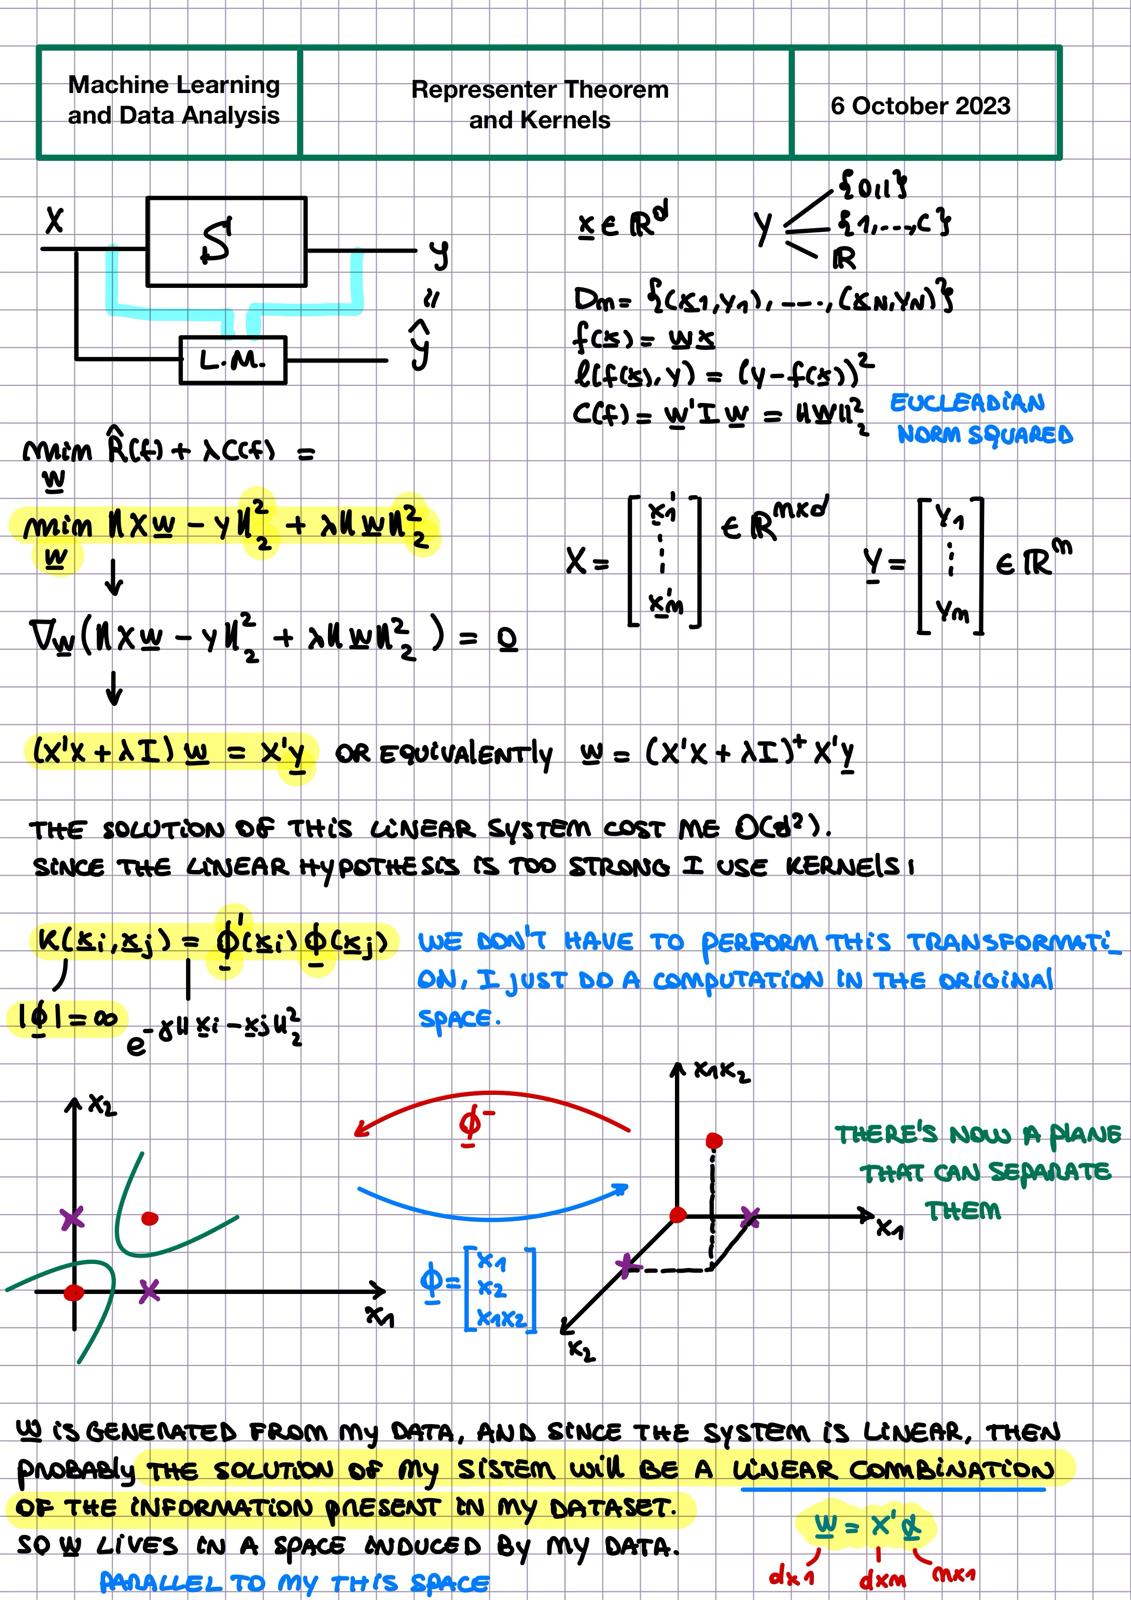 Machine Learning
and Data Analysis
Representer Theorem
and Kernels
6 October 2023
X
S
y
"
ŷ
L.M.
x ∈ ℝᵈ
Y
{0,1}
{1,...,C}
ℝ
Dm = {(x1,y1), ----, (xN,yN)}
f(x) = wx
ℓ(f(x),y) = (y-f(x))²
C(f) = w'Iw = ||w||₂²
EUCLEADIAN
NORM SQUARED
min R̂(f) + λC(f) =
w
min ||Xw - y||₂² + λ||w||₂²
w
X = [x1' ⋮ xm'] ∈ ℝᵐˣᵈ
Y = [Y1 ⋮ Ym] ∈ ℝᵐ
∇w(||Xw - y||₂² + λ||w||₂²) = 0
(X'X + λI) w = X'y OR EQUIVALENTLY w = (X'X + λI)⁺ X'y
THE SOLUTION OF THIS LINEAR SYSTEM COST ME O(d²).
SINCE THE LINEAR HYPOTHESIS IS TOO STRONG I USE KERNELS!
K(xi,xj) = ϕ'(xi) ϕ(xj)
WE DON'T HAVE TO PERFORM THIS TRANSFORMATI_
ON, I JUST DO A COMPUTATION IN THE ORIGINAL
SPACE.
|ϕ| = ∞
e^-γ||xi-xj||₂²
x2
x1
ϕ⁻
ϕ = [x1 x2 x1x2]
x1x2
x1
x2
THERE'S NOW A PLANE
THAT CAN SEPARATE
THEM
w IS GENERATED FROM MY DATA, AND SINCE THE SYSTEM IS LINEAR, THEN
PROBABLY THE SOLUTION OF MY SISTEM WILL BE A LINEAR COMBINATION
OF THE INFORMATION PRESENT IN MY DATASET.
SO w LIVES IN A SPACE INDUCED BY MY DATA.
PARALLEL TO MY THIS SPACE
w = X'α
dx1
dxm
mx1